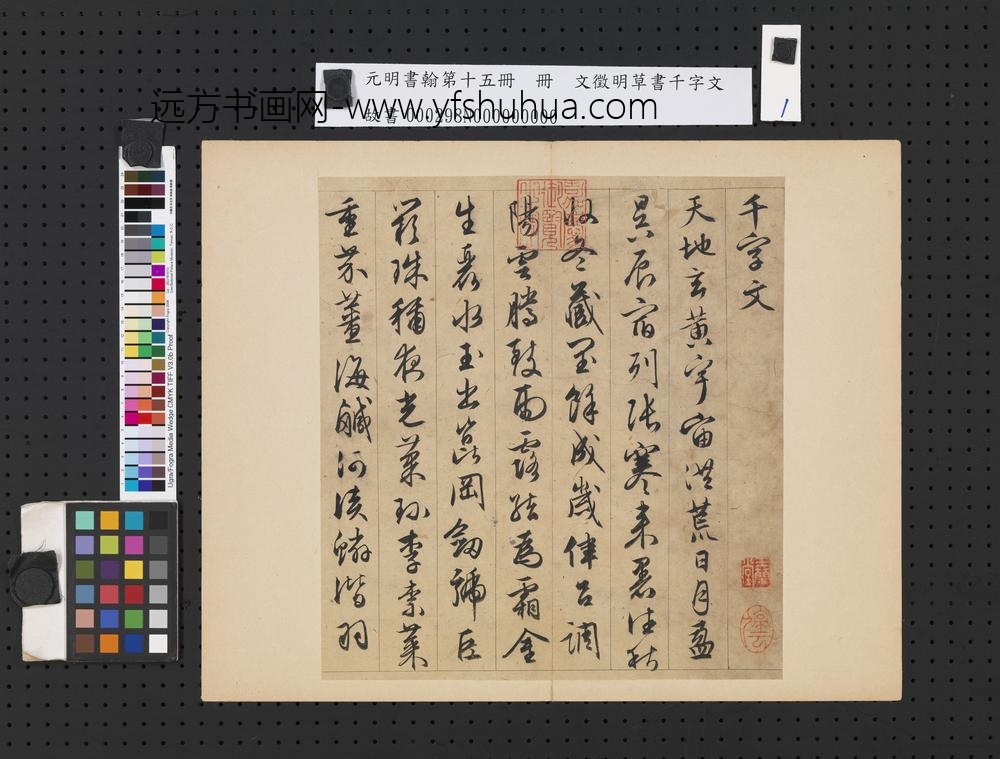 元明書翰第十五冊 冊 文徵明草書千字文
故書 000298N000000000
远方书画网-www.yfshuhua.com
千字文
天地玄黃宇宙洪荒日月盈
昃辰宿列張寒来暑往秋
收冬藏閏餘成歲律吕調
陽雲騰致雨露結爲霜金
生麗水玉出崑岡劔號巨
闕珠稱夜光菓珎李柰菜
重芥薑海鹹河淡鱗潛羽
Ugra/Fogra Media Wedge CMYK TIFF V3.0b Proof